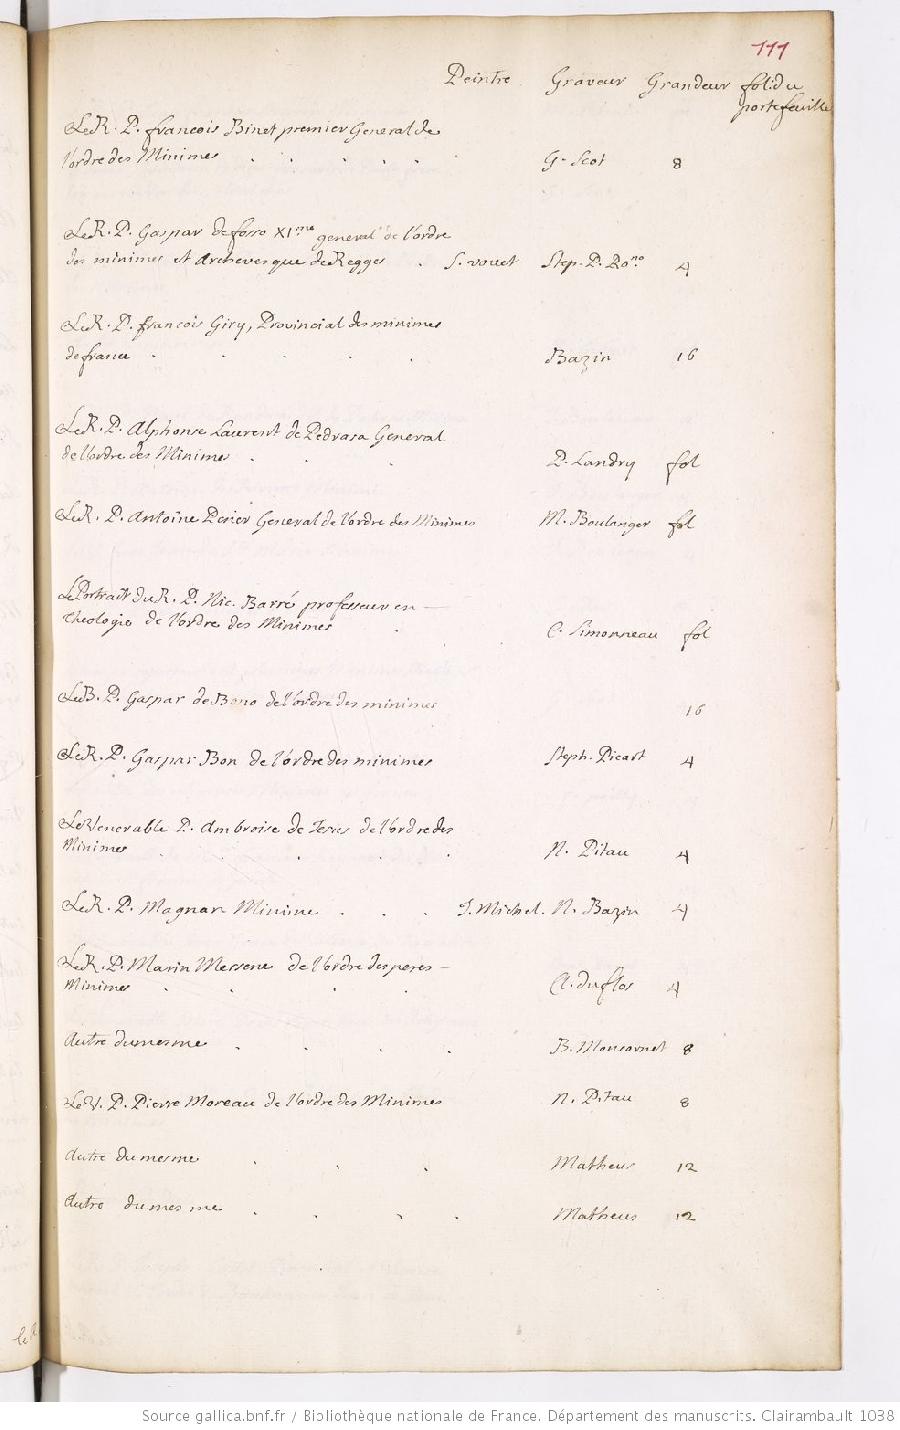 111
Peintre Graveur Grandeur fol: du
portefeuille
Le R. P. francois Binet premier General de
l'ordre des Minimes . . . . . G. Scot 8
Le R. P. Gaspar de fosso XI.me general de l'ordre
des minimes et Archevesque de Regges . S. vouet Step. P. Ro.no 4
Le R. P. francois Giry, Provincial des minimes
de france . . . . Bazin 16
Le R. P. Alphonse Laurent de Pedrasa General
de l'ordre des Minimes . . P. Landry fol
Le R. P. Antoine Perier General de l'ordre des Minimes M. Boulanger fol
Le Portrait du R. P. Nic. Barré professeur en —
theologie de l'ordre des Minimes . C. Simonneau fol
Le B. P. Gaspar de Bono de l'ordre des minimes 16
Le R. P. Gaspar Bon de l'ordre des minimes Steph. Picart 4
Le Venerable P. Ambroise de Jesus de l'ordre des
Minimes . . . . . N. Pitau 4
Le R. P. Magnan Minime . . . J. Michel. N. Bazin 4
Le R. P. Marin Mersene de l'ordre des peres —
Minimes . . . . Cl. duflos 4
Autre du mesme . . . . B. Monsornet 8
Le V. P. Pierre Moreau de l'ordre des Minimes N. Pitau 8
Autre du mesme . . . Matheus 12
Autre du mesme . . . . Matheus 12
Source gallica.bnf.fr / Bibliothèque nationale de France. Département des manuscrits. Clairambault 1038